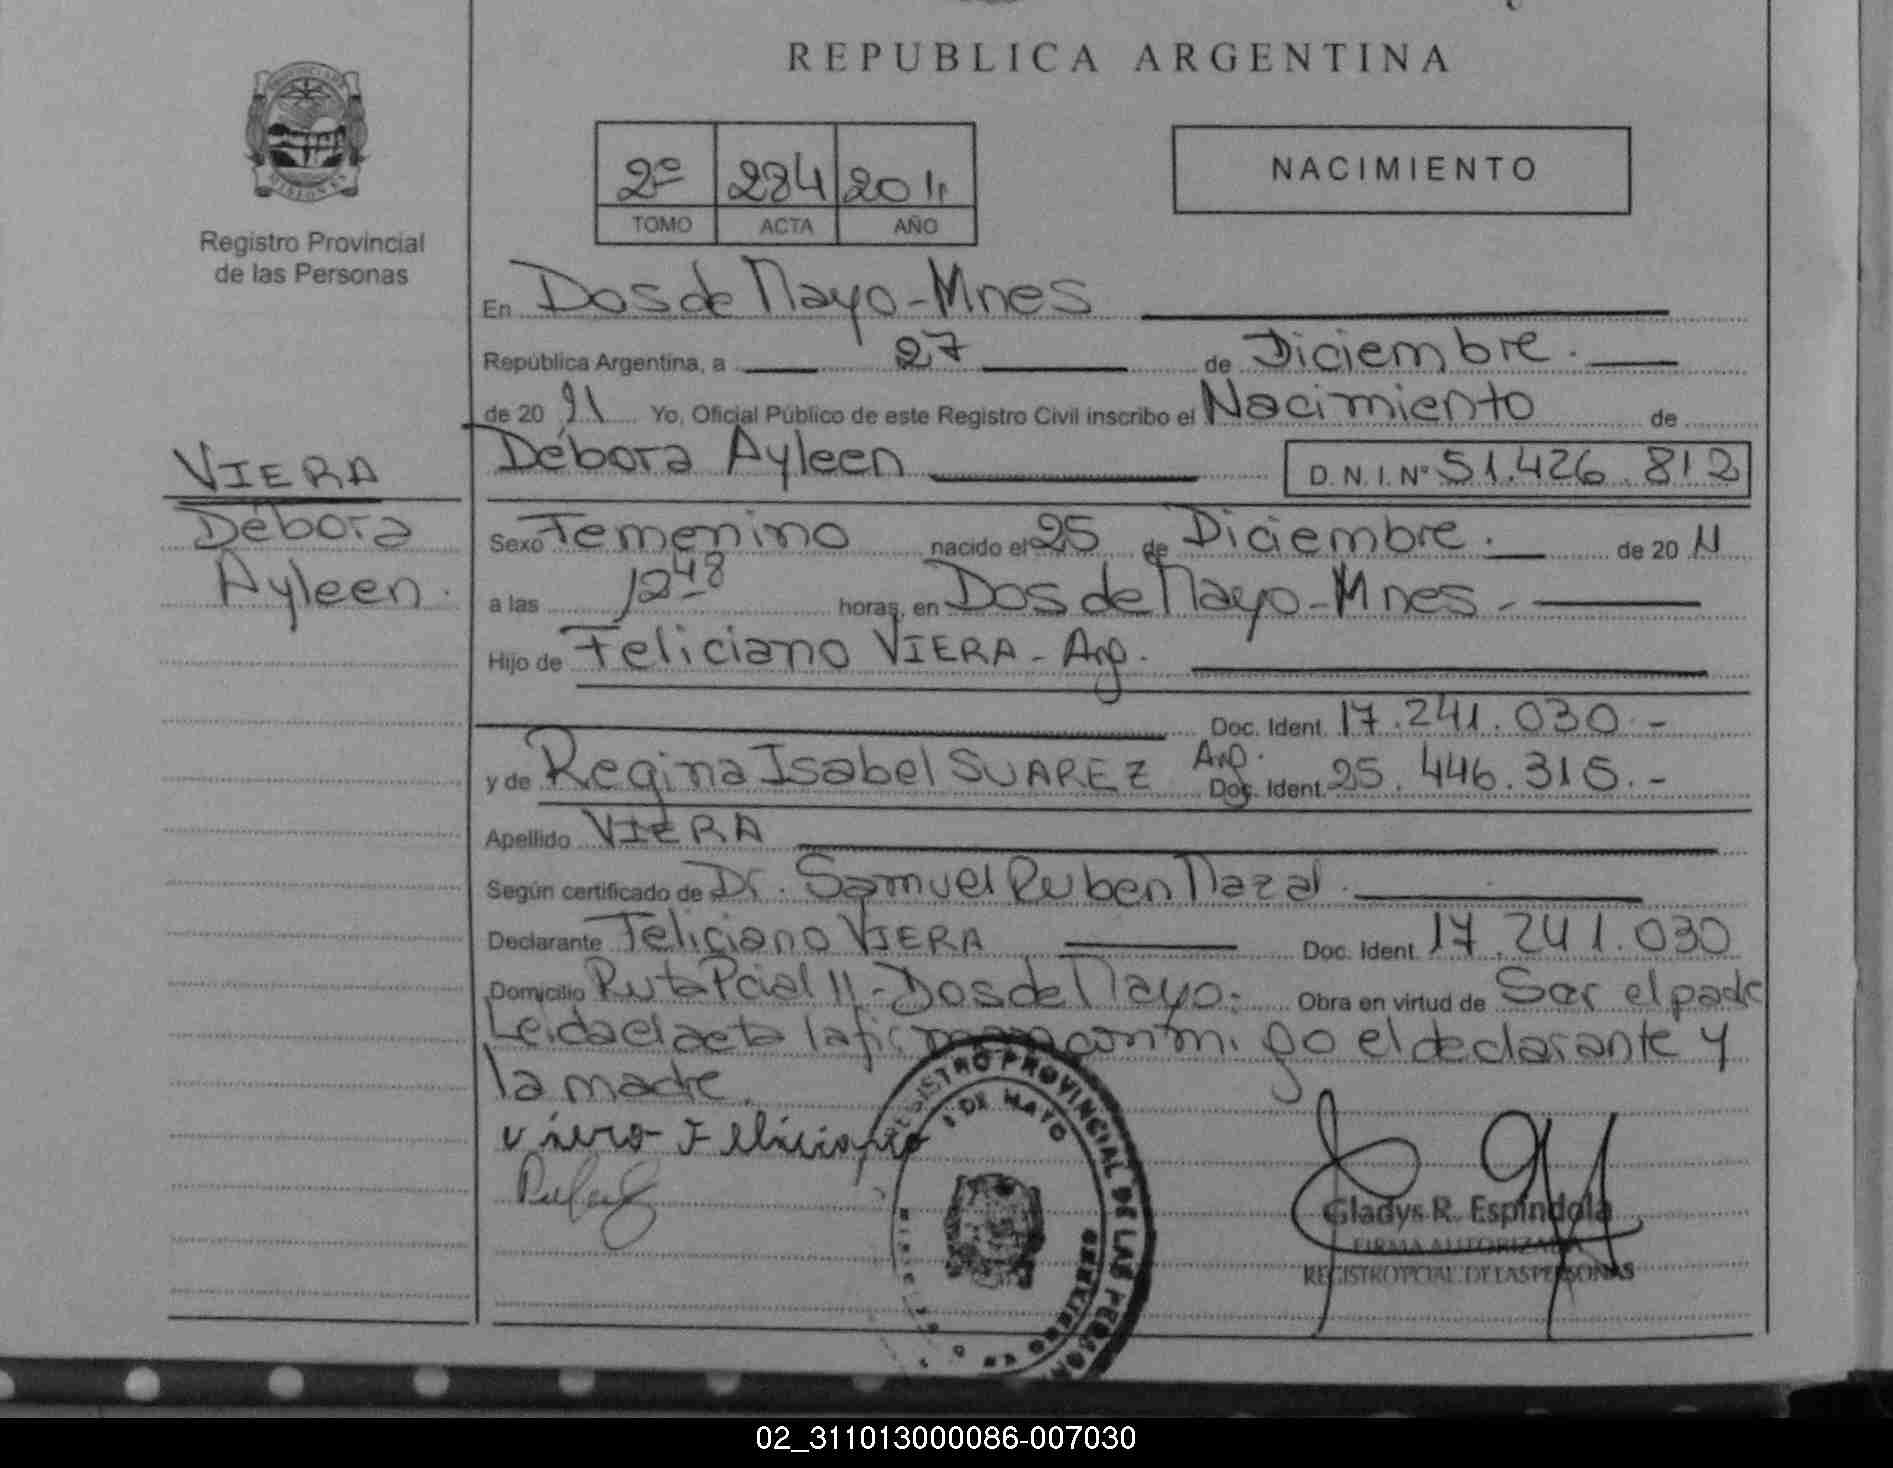 REPUBLICA ARGENTINA
PROVINCIA DE
MISIONES
Registro Provincial
de las Personas
2º 284 2011
TOMO ACTA AÑO
NACIMIENTO
En Dos de Mayo - Mnes
República Argentina, a 27 de Diciembre.
de 2011 Yo, Oficial Público de este Registro Civil inscribo el Nacimiento de
VIERA
Débora
Ayleen.
Débora Ayleen D. N. I. Nº 51.426.812
Sexo Femenino nacido el 25 de Diciembre. de 2011
a las 12 48 horas, en Dos de Mayo - Mnes -
Hijo de Feliciano VIERA - Arg.
Doc. Ident. 17.241.030.-
y de Regina Isabel SUAREZ Arg. Doc. Ident. 25.446.315.-
Apellido VIERA
Según certificado de Dr. Samuel Ruben Nazal.
Declarante Feliciano VIERA Doc. Ident. 17.241.030
Domicilio Ruta Pcial 11 - Dos de Mayo. Obra en virtud de Ser el padre
Leida el acta la firman conmigo el declarante y
la madre.
viera Feliciano
REGISTRO PROVINCIAL DE LAS PERSON
DE MAYO
Gladys R. Espindola
FIRMA AUTORIZADA
REGISTRO PCIAL. DE LAS PERSONAS
02_311013000086-007030